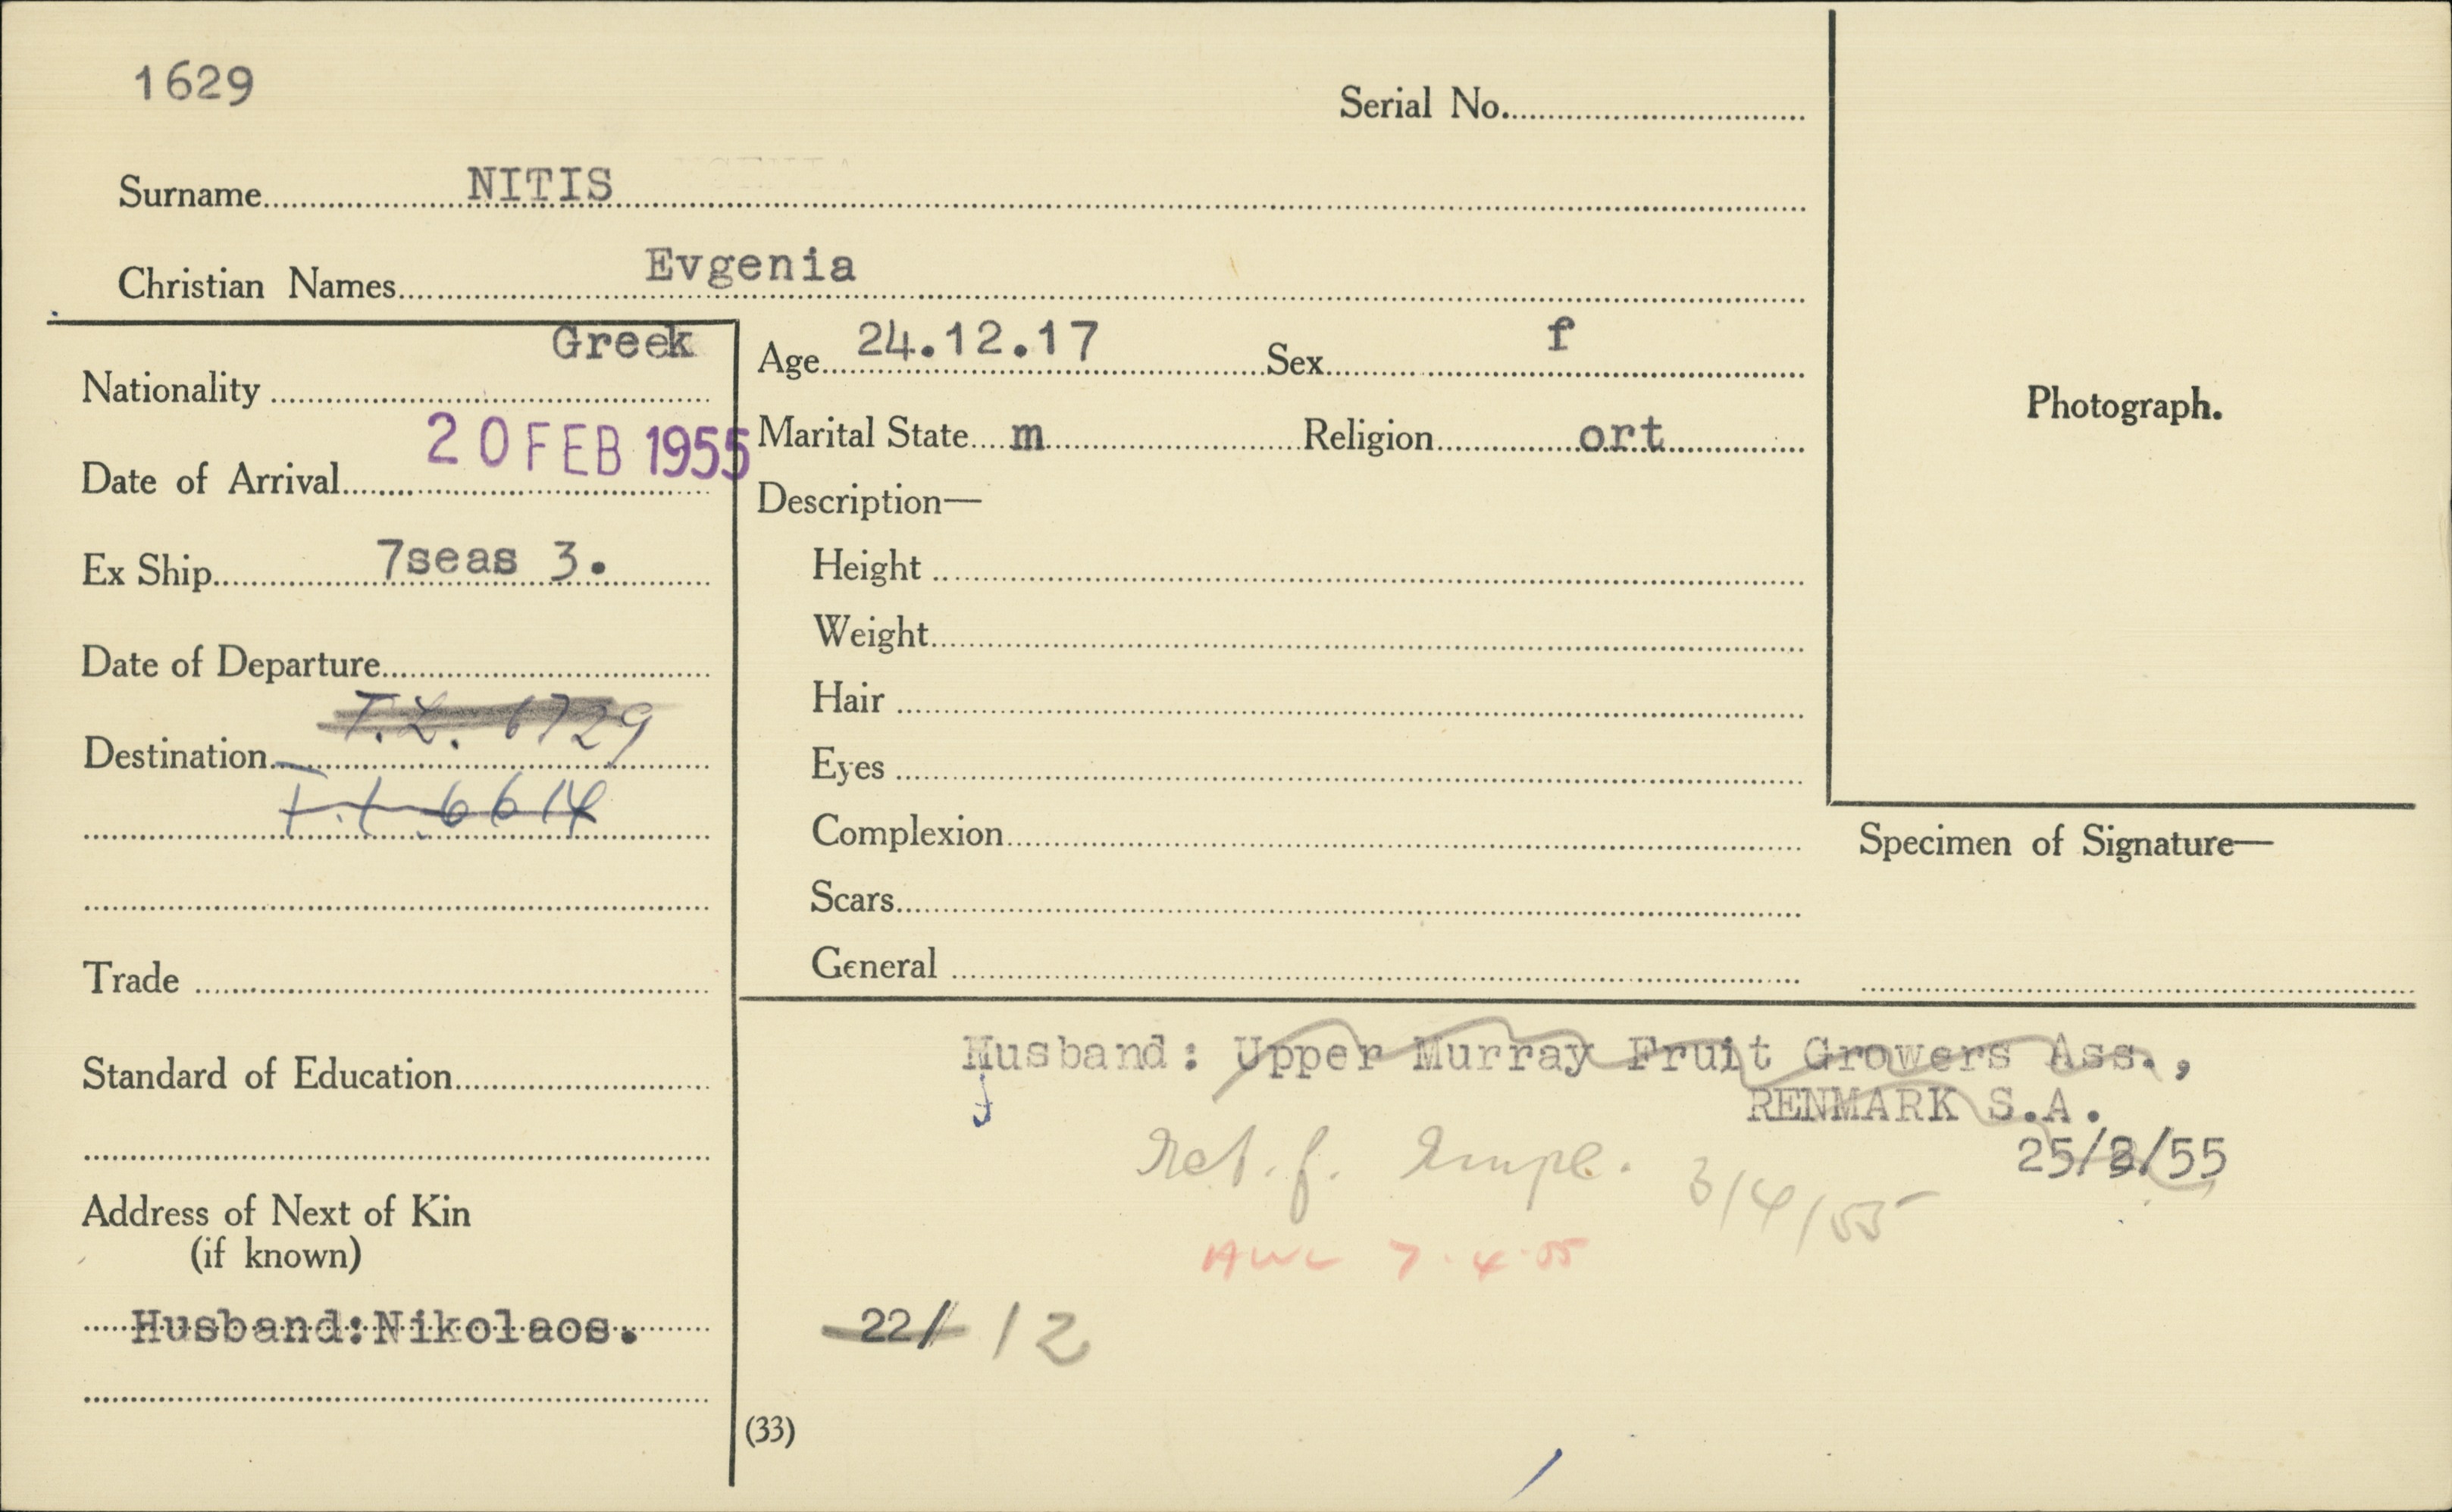 1629
Serial No.
Surname NITIS
Christian Names Evgenia
Nationality Greek
Date of Arrival 20 FEB 1955
Ex Ship 7seas 3.
Date of Departure
T.L. 6729
Destination
T.L. 6614
Trade
Standard of Education
Address of Next of Kin
(if known)
Husband:Nikolaos.
Age 24.12.17 Sex f
Marital State m Religion ort
Description—
Height
Weight
Hair
Eyes
Complexion
Scars
General
Photograph.
Specimen of Signature—
Husband: Upper Murray Fruit Growers Ass.,
RENMARK S.A.
25/3/55
Ret. f. Empl. 3/4/55
7.4.55
22/ 12
(33)